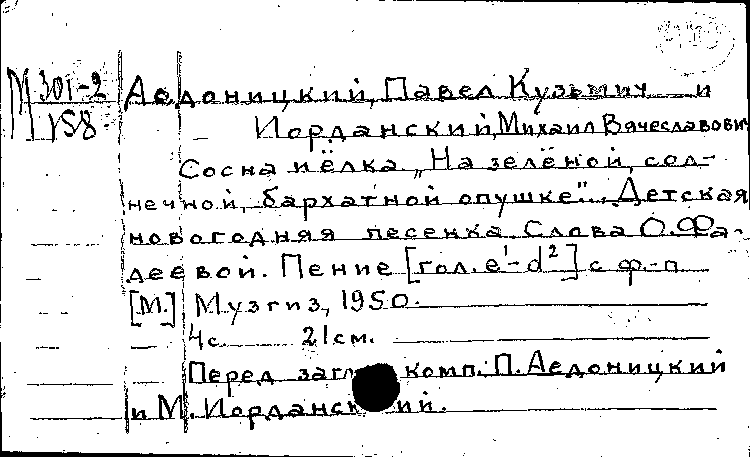 М 301-2
158
Аедоницкий, Павел Кузьмич и
Иорданский, Михаил Вячеславович
Сосна и ёлка „На зелёной, сол-
нечной, бархатной опушке". Детская
новогодняя песенка. Слова О. Фа-
деевой. Пение [гол. e¹-d²] с ф-п.
[М.] Музгиз, 1950.
4 с. 21 см.
Перед загл. комп.: П. Аедоницкий
и М. Иорданский.